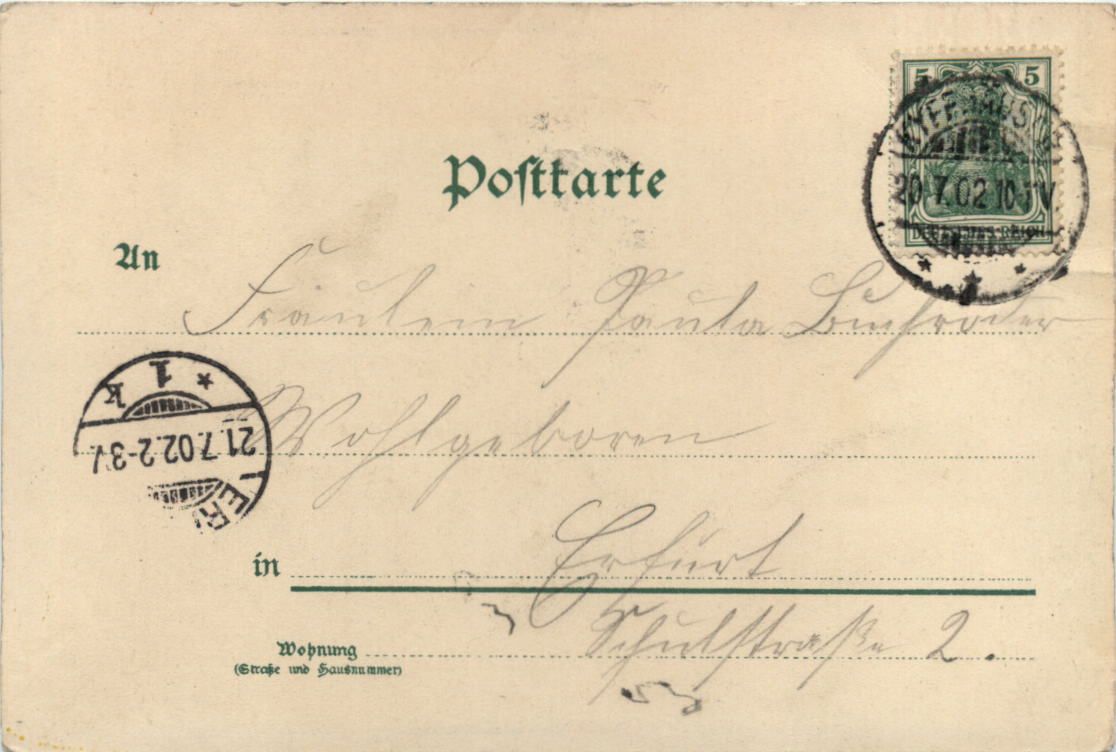 5 5
KYFFHÄUSER
20.7.02 10-11V
DEUTSCHES REICH
Postkarte
An
Fräulein Paula Buchröder
Wohlgeboren
1
k
21.7.02. 2-3V.
in
Erfurt
Wohnung
Schulstraße 2.
(Straße und Hausnummer)